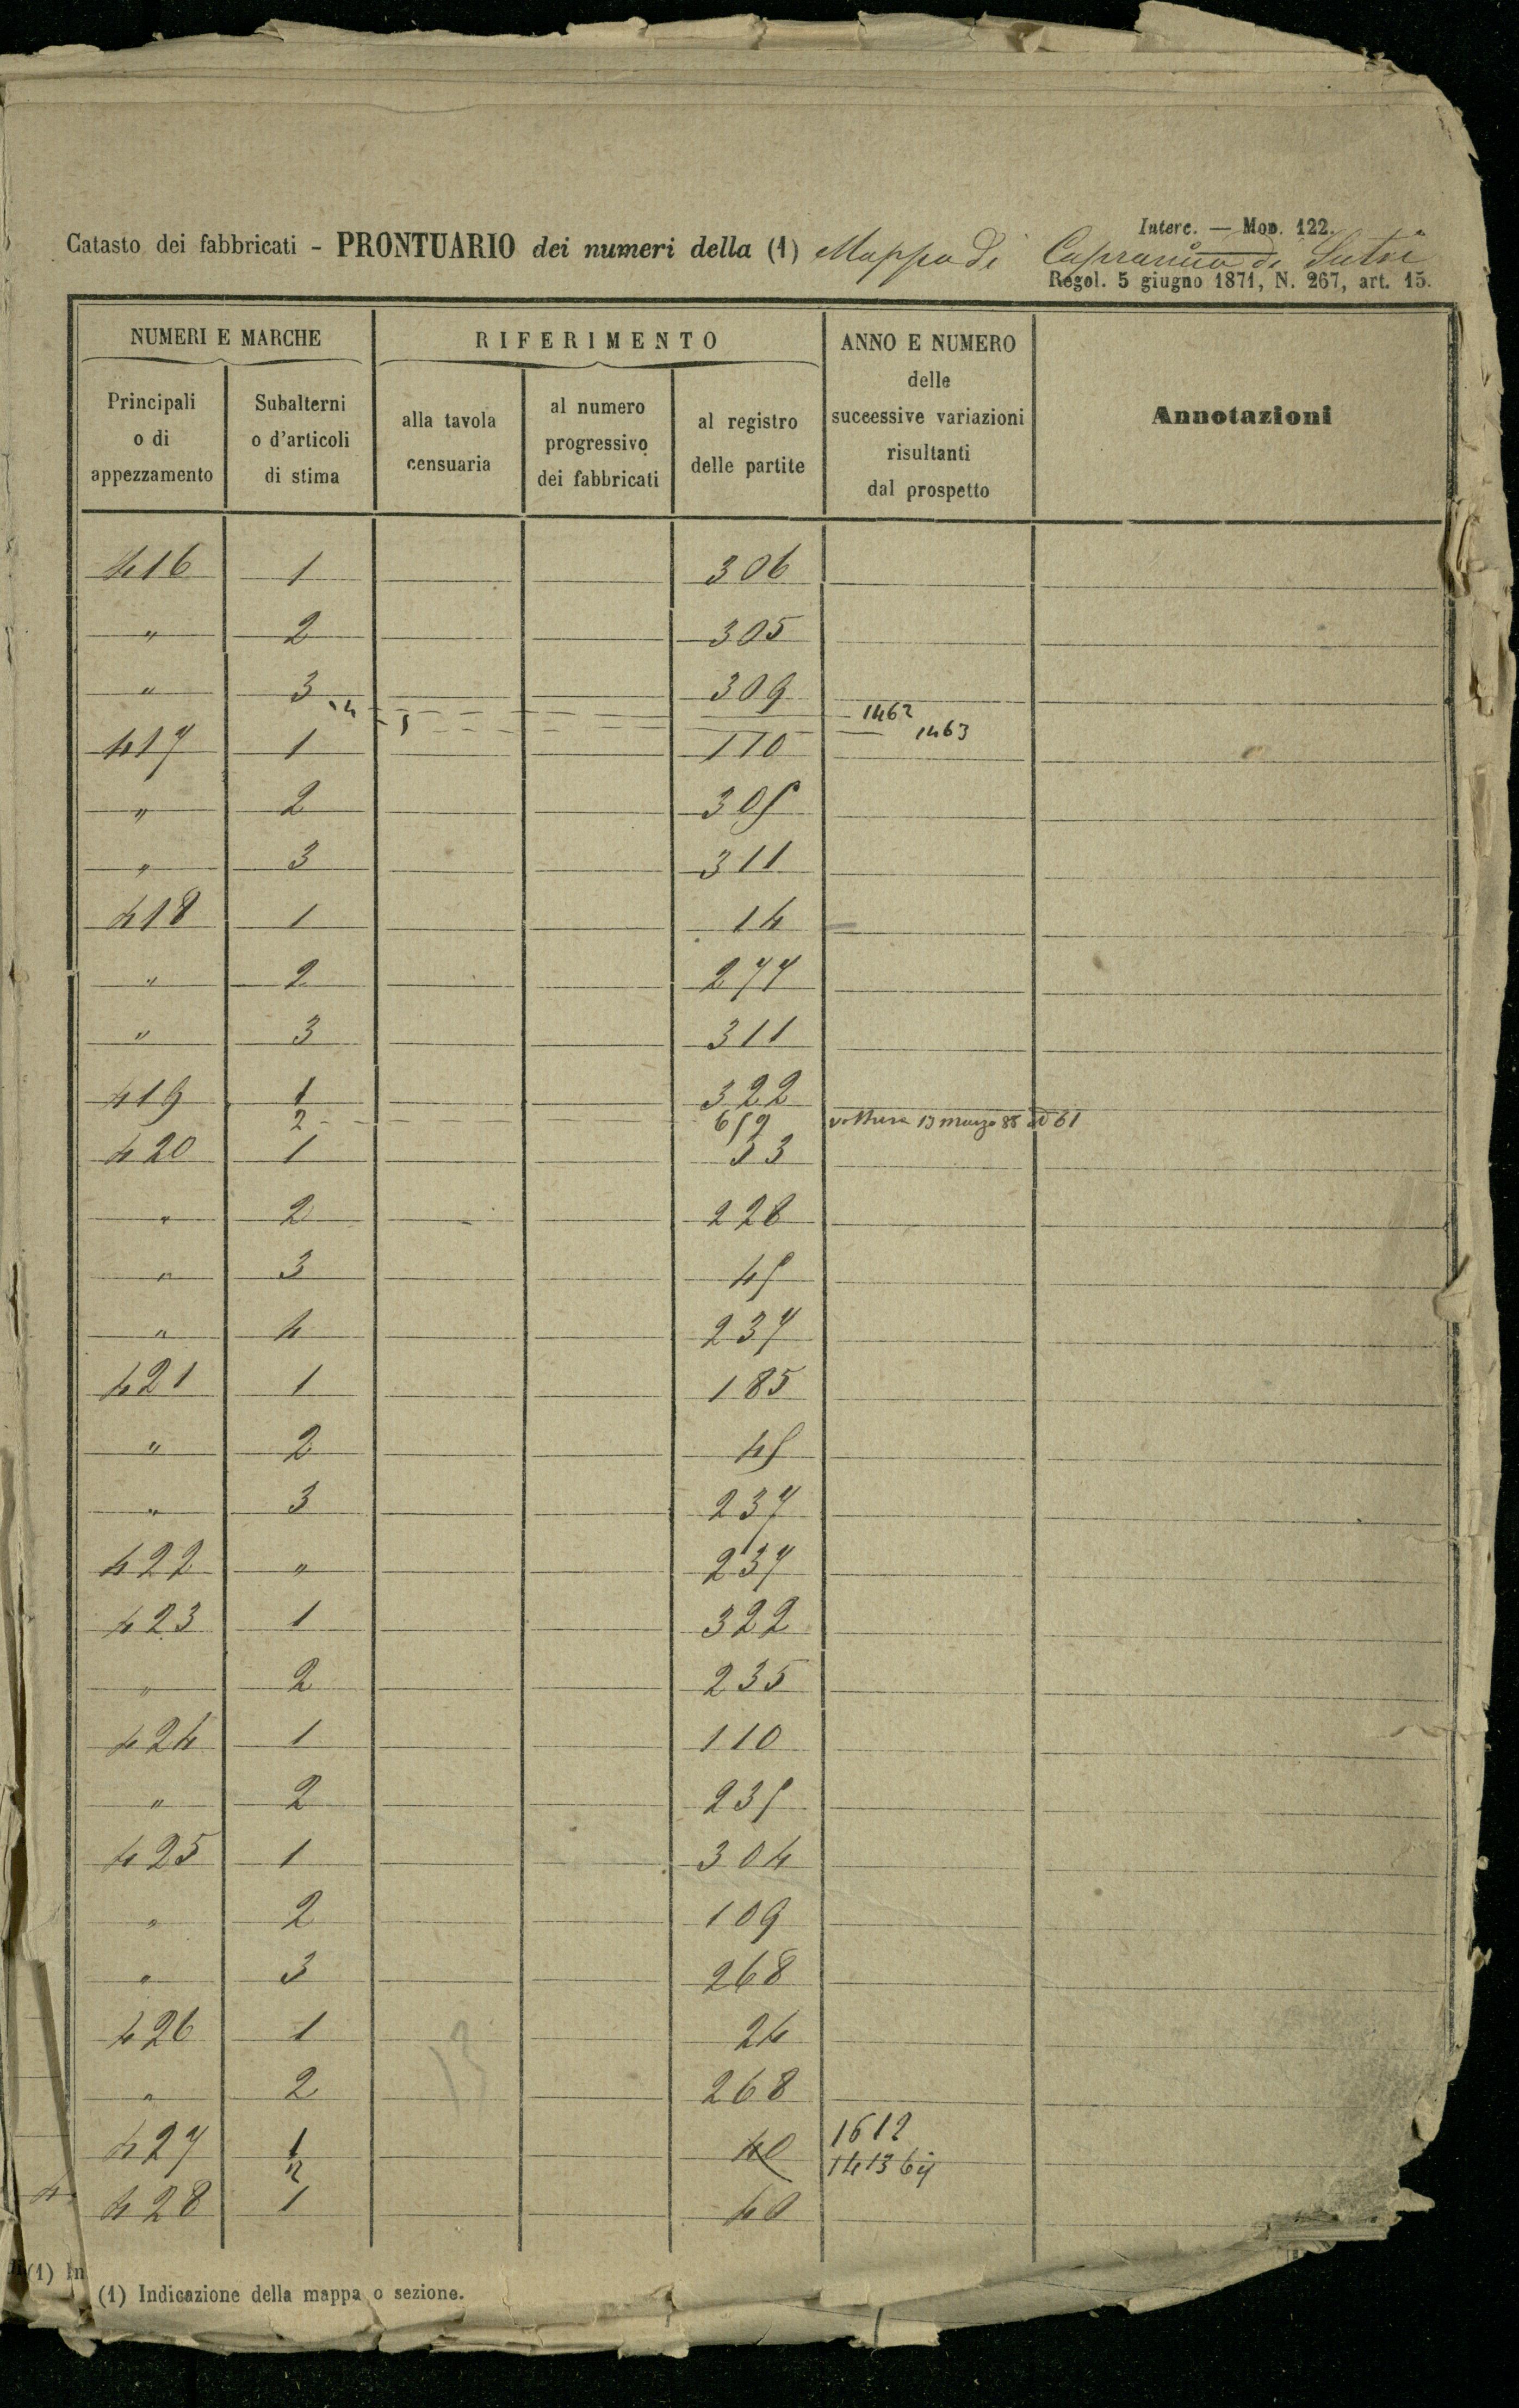 Interc. — Mod. 122.
Catasto dei fabbricati - PRONTUARIO dei numeri della (1) Mappa di Capranica di Sutri
Regol. 5 giugno 1871, N. 267, art. 15.
NUMERI E MARCHE RIFERIMENTO ANNO E NUMERO delle successive variazioni risultanti dal prospetto Annotazioni
Principali o di appezzamento Subalterni o d'articoli di stima alla tavola censuaria al numero progressivo dei fabbricati al registro delle partite
416 1 306
" 2 305
" 3 309
4 1462
5 1463
417 1 110
" 2 305
" 3 311
418 1 14
" 2 277
" 3 311
419 1 322
2 659 voltura 13 marzo 88 ad 61
420 1 33
" 2 228
" 3 45
" 4 237
421 1 185
" 2 45
" 3 237
422 " 237
423 1 322
" 2 235
424 1 110
" 2 235
425 1 304
" 2 109
" 3 268
426 1 24
" 2 268
427 1 40 1612
2
428 1 40
(1) In
(1) Indicazione della mappa o sezione.